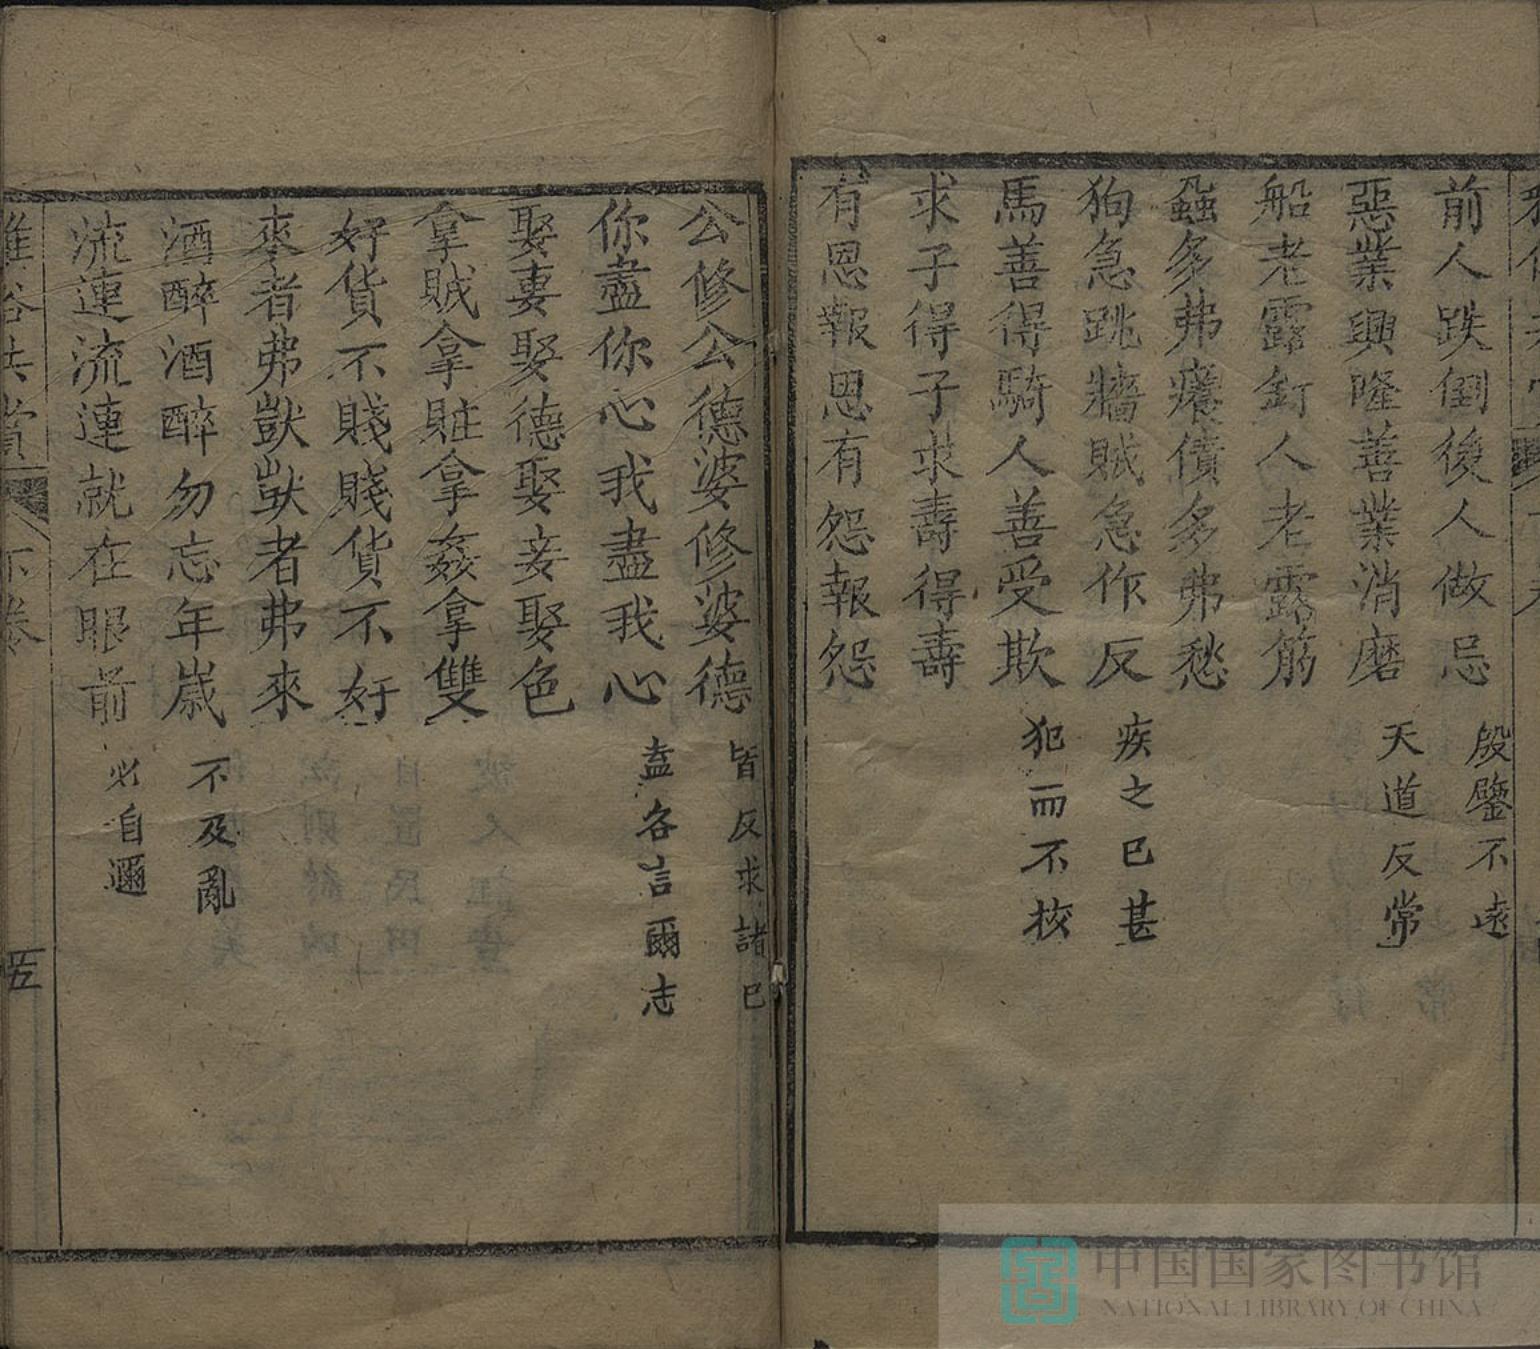 前人跌倒後人做忌 殷鑒不遠
惡業興隆善業消磨 天道反常
船老露釘人老露筋
蝨多弗癢債多弗愁
狗急跳牆賊急作反 疾之已甚
馬善得騎人善受欺 犯而不校
求子得子求壽得壽
有恩報恩有怨報怨
公修公德婆修婆德 皆反求諸己
你盡你心我盡我心 盍各言爾志
娶妻娶德娶妾娶色
拿賊拿賍拿姦拿雙
好貨不賤賤貨不好
來者弗獃獃者弗來
酒醉酒醉勿忘年歲 不及亂
流連流連就在眼前 必自邇
雅俗共賞 下卷 五
中国国家图书馆
NATIONAL LIBRARY OF CHINA